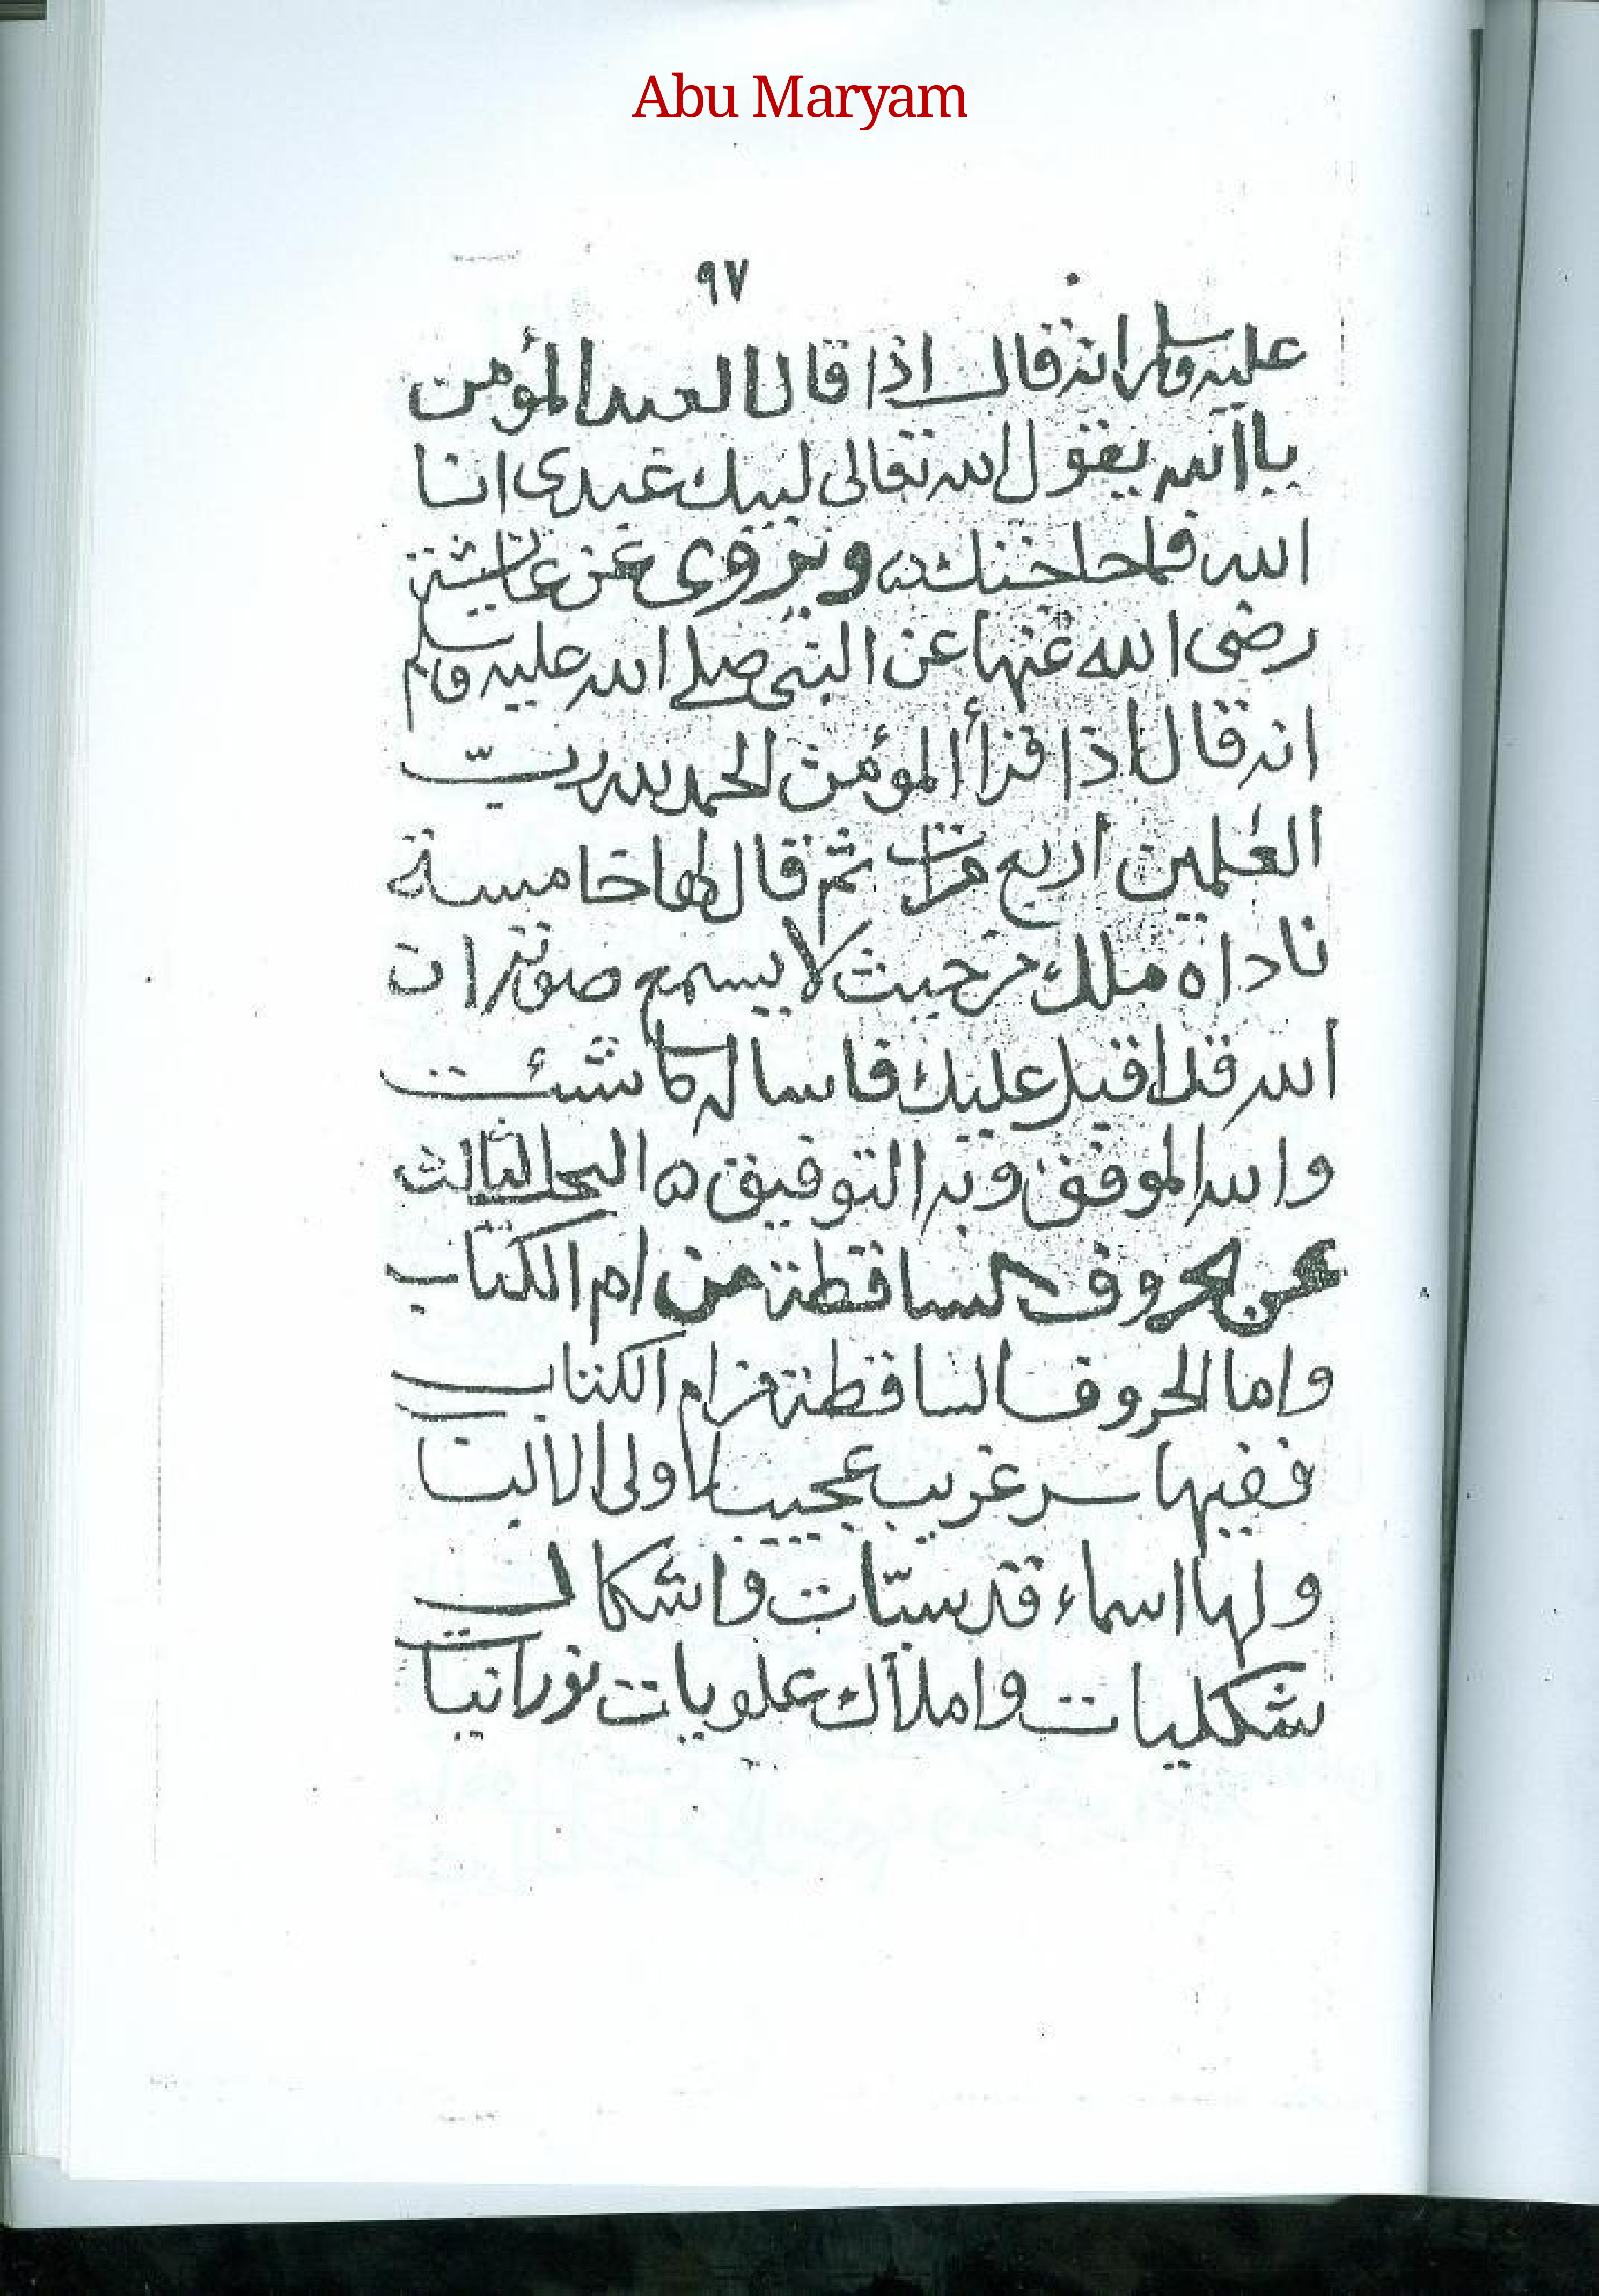 Abu Maryam
٩٧
عليه وسلم انه قال اذا قال العبد المؤمن
يا الله يقول الله تعالى لبيك عبدى انا
الله فما حاجتك ويروى عن عائشة
رضى الله عنها عن النبى صلى الله عليه وسلم
انه قال اذا قرأ المؤمن الحمد لله ربّ
العٰلمين اربع مرات ثم قال لها خامسة
ناداه ملك من حيث لا يسمع صوته ان
الله قد اقبل عليك فاساله ما شئت
والله الموفق وبه التوفيق ه الثالث
عن الحروف الساقطة من ام الكتاب
واما الحروف الساقطة من ام الكتاب
ففيها سر غريب عجيب لاولى الالبا
ولها اسماء قدسيّات واشكال
شكليات واملاك علويات نورانيا